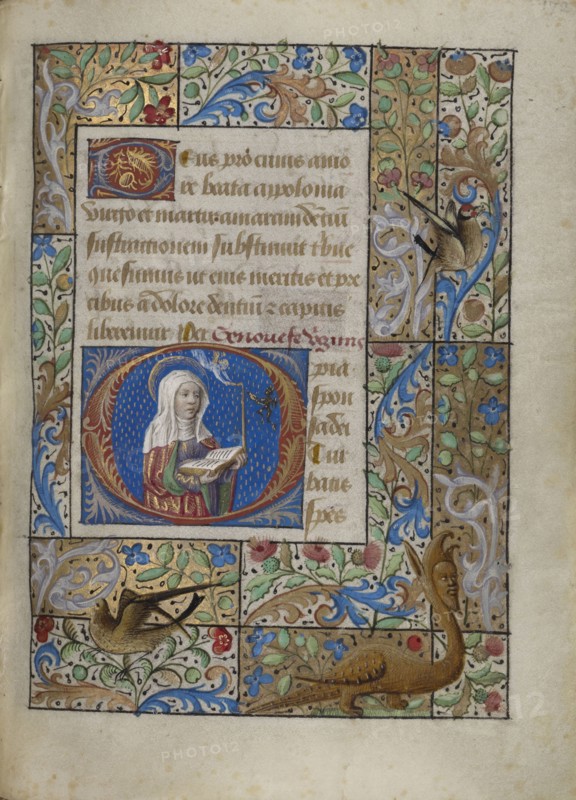 Deus pro cuius amo
re beata appolonia
virgo et martir amaram dentiū
sustractionem substinuit tribue
quesumus ut eius meritis et pre
cibus a dolore dentiū et capitis
liberemur Per Genovefe virginis
O pia
spon
sa dei
tur
batis
spes
PHOTO12